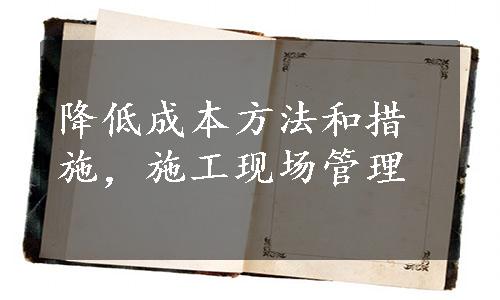 降低成本方法和措
施，施工现场管理